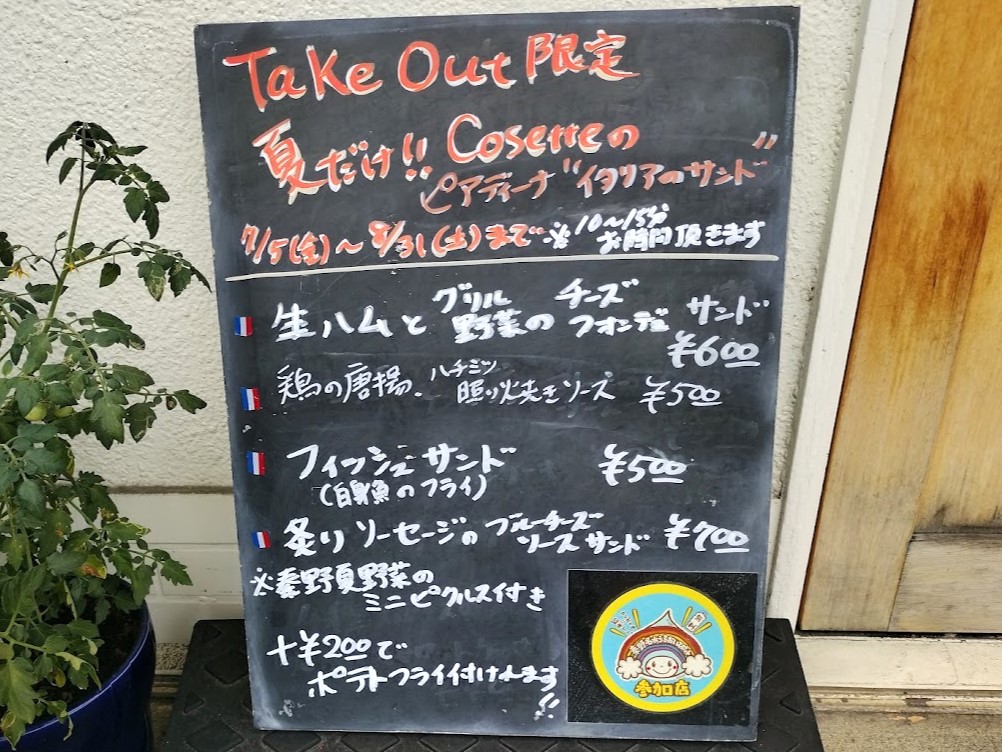 Take Out 限定
夏だけ!! Cosetteの
ピアディーナ "イタリアのサンド"
7/5(金)～8/31(土)まで ※10～15分
お時間頂きます
生ハムとグリル野菜のチーズフォンデュサンド
¥600
鶏の唐揚. ハチミツ照り焼きソース ¥500
フィッシュサンド ¥500
(白身魚のフライ)
炙りソーセージのブルーチーズソースサンド ¥700
※秦野夏野菜の
ミニピクルス付き
+¥200で
ポテトフライ付けれます!!
参加店